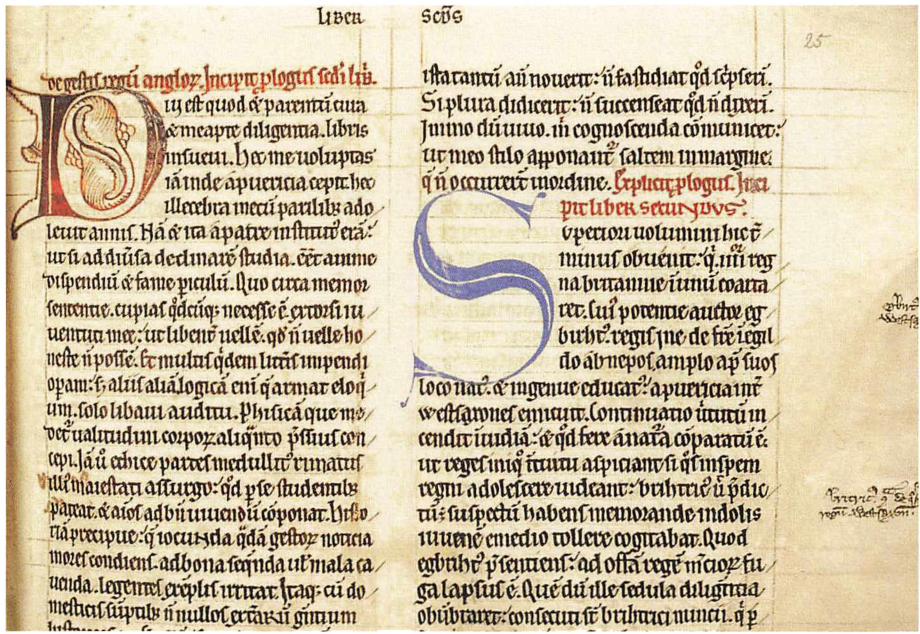 LIBER SCĎS
25
De gestis regū angloꝝ. Incipit ꝓlogus scđi libr̄.
Diu est quod & parentū cura
& meapte diligentia. libris
insueui. Hec me uoluptas
iā inde a puericia cepit: hec
illecebra mecū parilibꝫ ado
leuit annis. Nā & ita a patre institutꝰ erā:
ut si ad diūsa declinarē studia. eēt anime
dispendiū & fame piculū. Quo circa memor
sententie. cupias qđcūqꝫ necesse ē: extorsi iu
uentuti mee: ut libent̄ uellē. qđ n̄ uelle ho
neste n̄ possē. Et multis qđem litt̄is impendi
opam: sꝫ aliis aliā. logicā eni q̄ armat eloq̄
um. solo libaui auditu. Phisicā que me
det̄ ualitudini corpoꝝ aliq̄nto p̄ssius con
cepi. Iā ū ethice partes medullitꝰ rimatus
illiꝰ maiestati assurgo: qđ p se studentibꝫ
pateat. & aīos ad bn̄ uiuendū cōponat. Histo
riā precipue: q̄ iocunda q̄dā gestoꝝ noticia
mores condiens. ad bona seq̄nda ul̄ mala ca
uenda. legentes exēplis irritat. Itaqꝫ cū do
mesticis sūptibꝫ n̄ nullos extaꝝū gentium
ista tantū aū nouerit: n̄ fastidiat qđ sc̄pserī.
Si plura didicerit: n̄ succenseat qđ n̄ dixerī.
Immo dū uiuo. m̄ cognoscenda cōmunicet:
ut meo stilo apponant̄ saltem in margine.
q̄ n̄ occurrer̄t in ordine. Explicit ꝓlogus. Inci
pit liber secundus.
Superiori uolumini hic c̄
minus obuenit: q̄. iiii. reg
na britannie ī unū coarta
ret. Cuiꝰ potentie auctor eg
birhtꝰ. regis ine. de fr̄e īegil
do abnepos. amplo ap̄ suos
loco natꝰ. & ingenue educatꝰ: a puericia int̄
westsaxones emicuit. Continuatio ītutū in
cendit īuidiā: & qđ fere a natā cōparatū ē:
ut reges iniqͥ ītutū aspiciant si qͦs in spem
regni adolescere uideant: brihtricꝰ ū p̄dic
tꝰ: suspectū habens memorande indolis
iuuenē e medio tollere cogitabat. Quod
egbirhtꝰ p̄sentiens: ad offā regē m̄cioꝝ fu
ga lapsus ē. Quē dū ille sedula diligētia
obūbraret: consecuti st̄ brihtrici nuncii. q̄ p̄